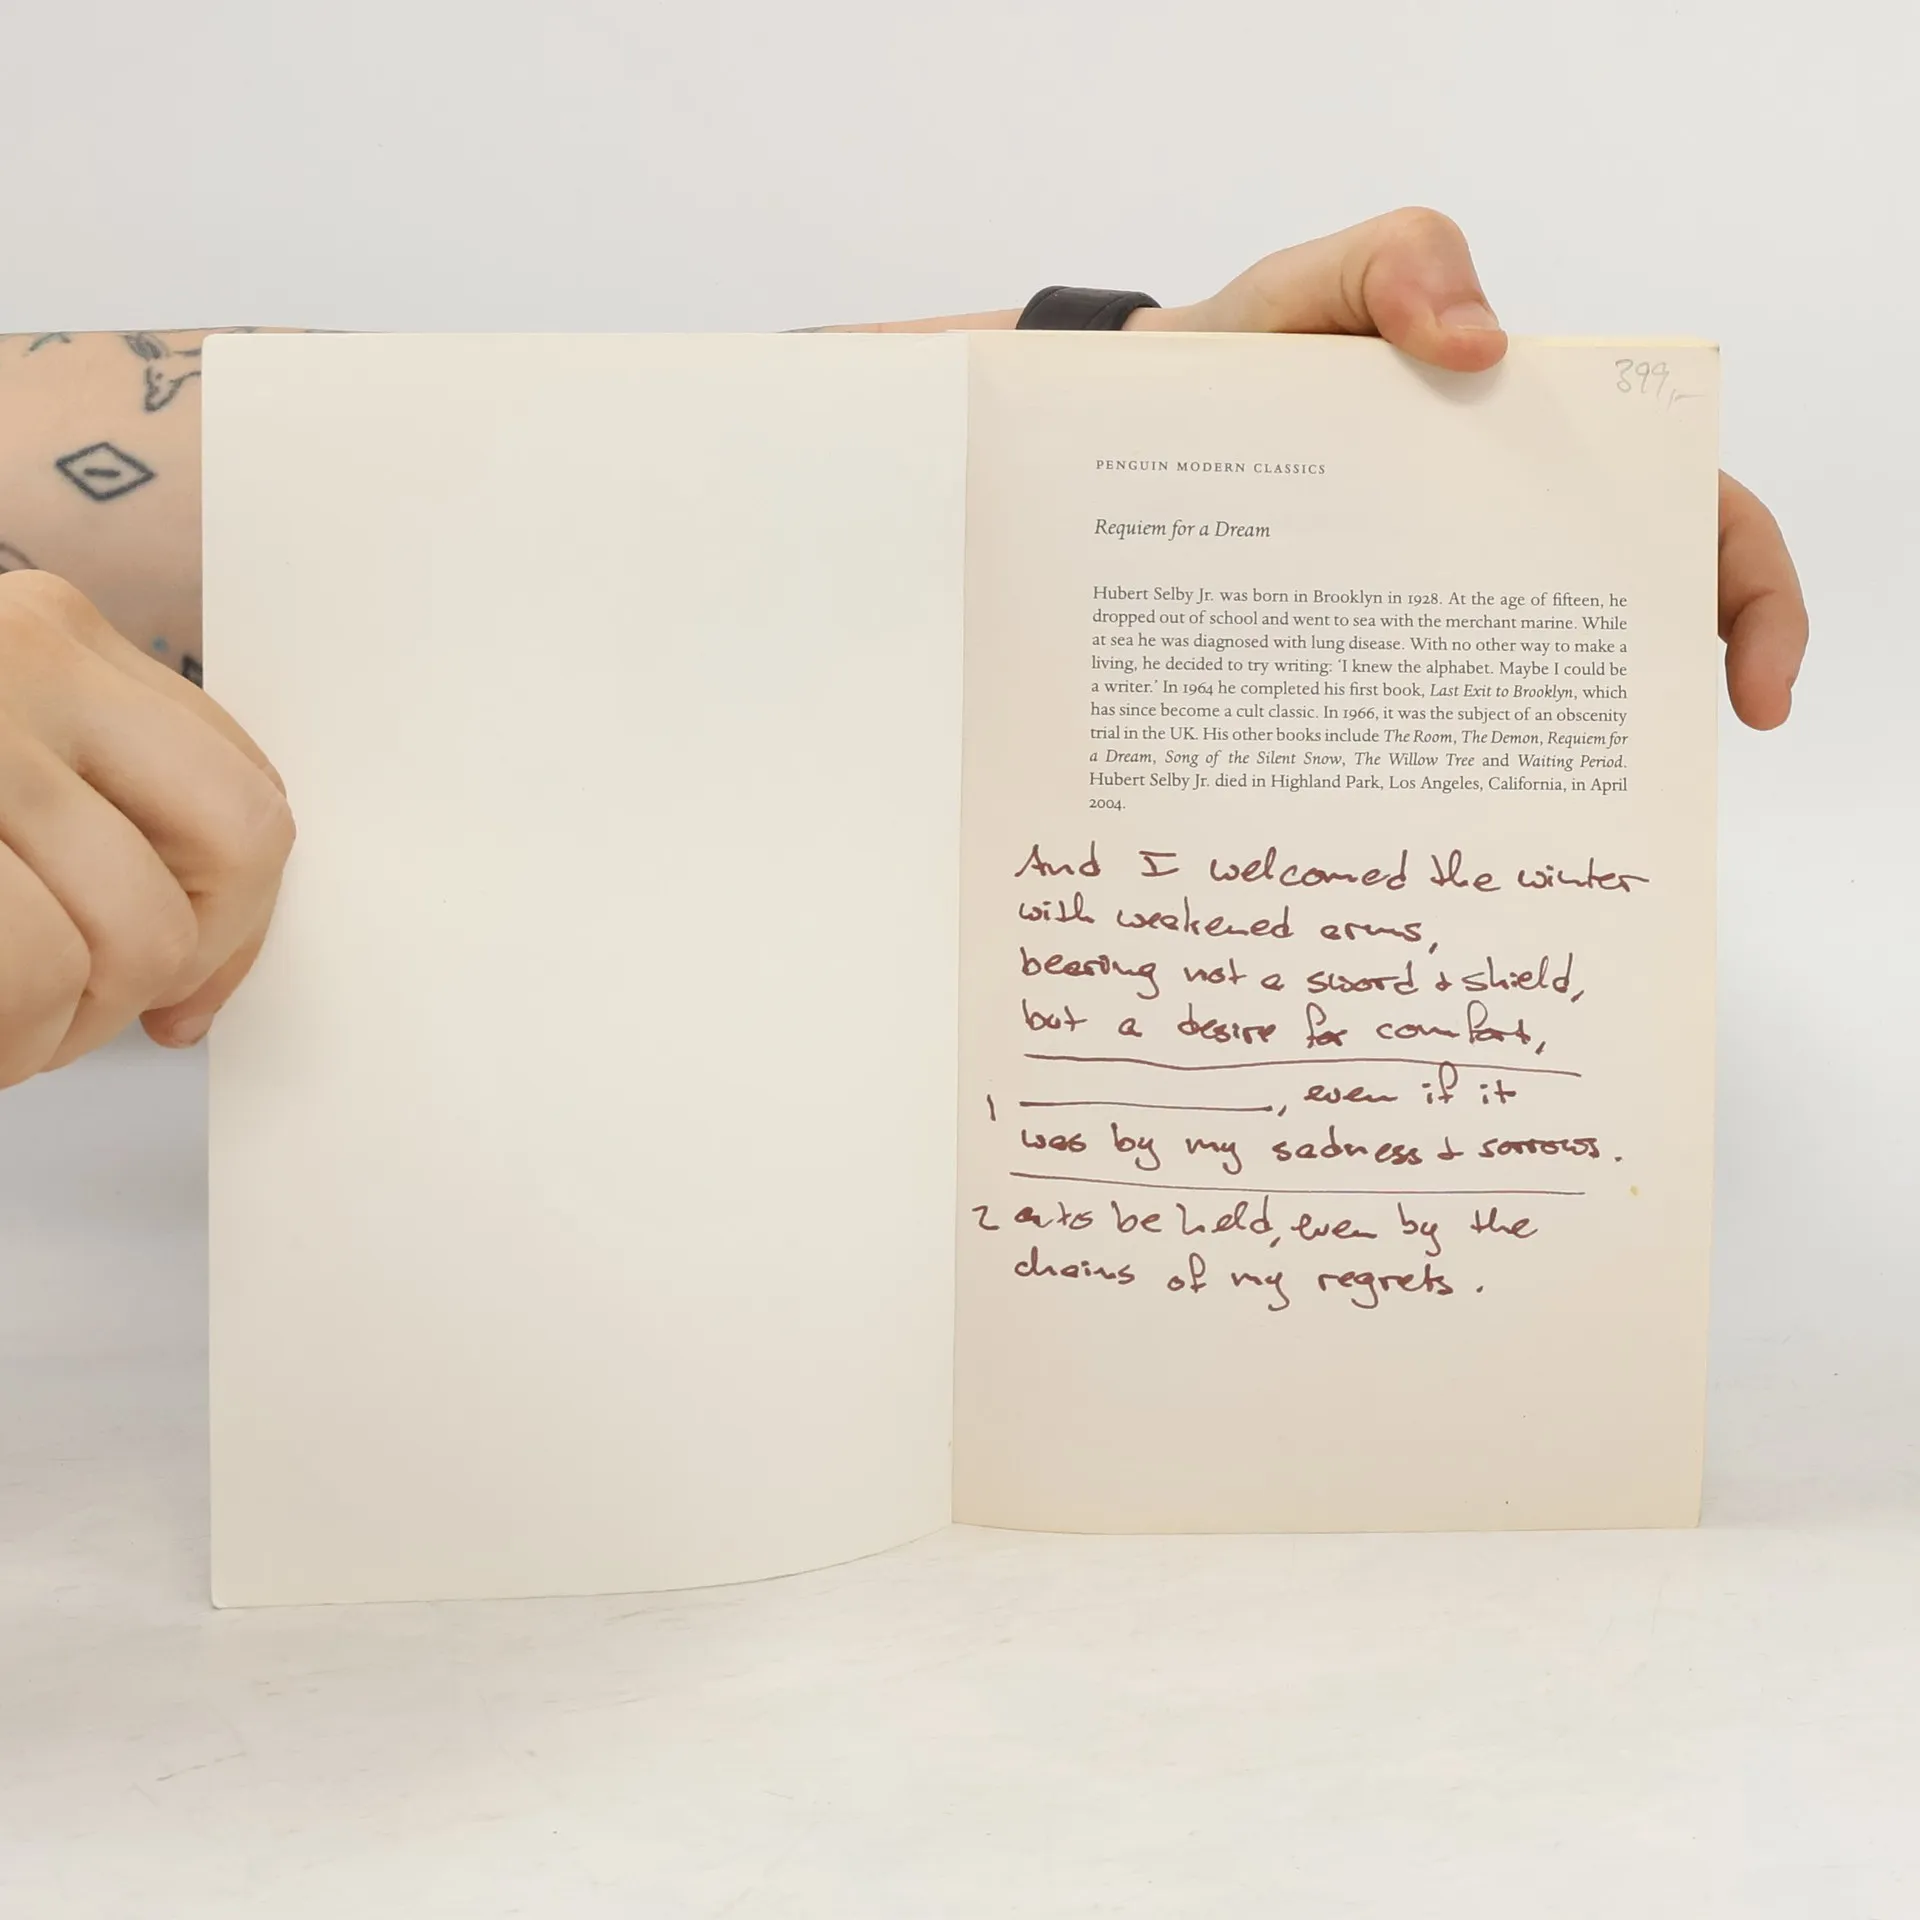 399,-
PENGUIN MODERN CLASSICS
Requiem for a Dream
Hubert Selby Jr. was born in Brooklyn in 1928. At the age of fifteen, he
dropped out of school and went to sea with the merchant marine. While
at sea he was diagnosed with lung disease. With no other way to make a
living, he decided to try writing: ‘I knew the alphabet. Maybe I could be
a writer.’ In 1964 he completed his first book, Last Exit to Brooklyn, which
has since become a cult classic. In 1966, it was the subject of an obscenity
trial in the UK. His other books include The Room, The Demon, Requiem for
a Dream, Song of the Silent Snow, The Willow Tree and Waiting Period.
Hubert Selby Jr. died in Highland Park, Los Angeles, California, in April
2004.
And I welcomed the winter
with weakened arms,
bearing not a sword & shield,
but a desire for comfort,
1 ________, even if it
was by my sadness & sorrows.
2 to be held, even by the
chains of my regrets.